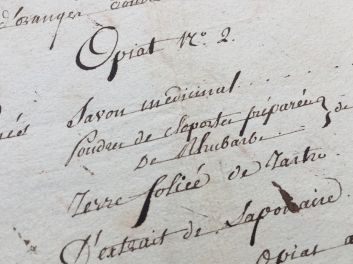 d'oranger
Opiat N.o 2.
Savon medicinal . . . .
Poudre de Cloportes préparées } de
De Rhubarbe
Terre foliée de Tartre
D'extrait de Saponaire.
Opiat a